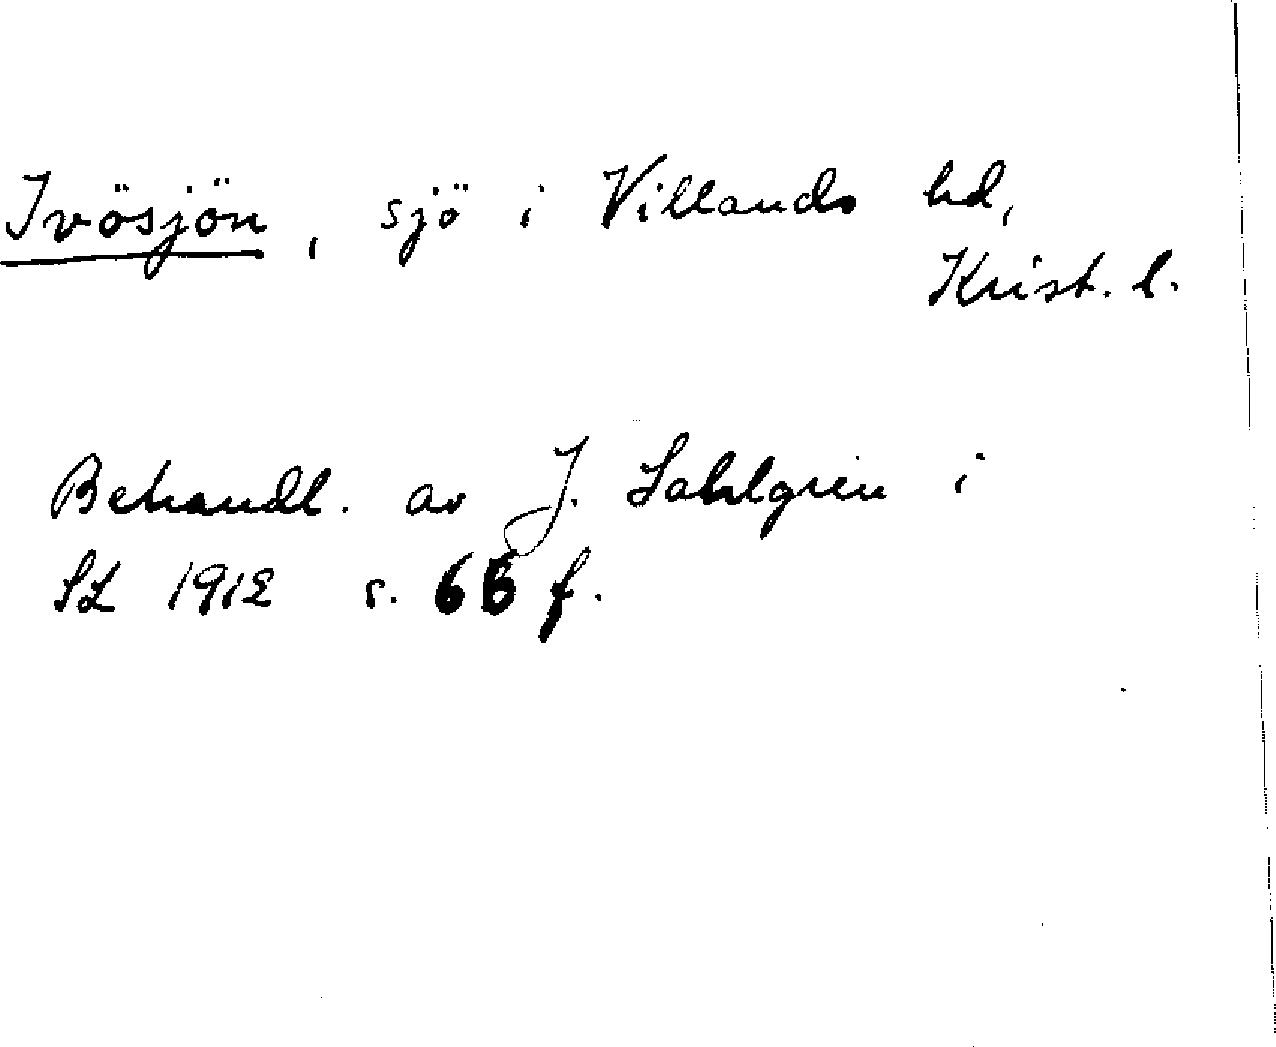 Ivösjön, sjö i Villands hd,
Krist. l.
Behandl. av J. Sahlgren i
SL 1912 s. 66 f.